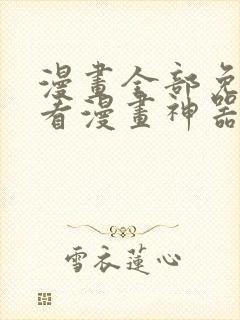 漫畫全部免
看漫畫神器
雪衣蓮心